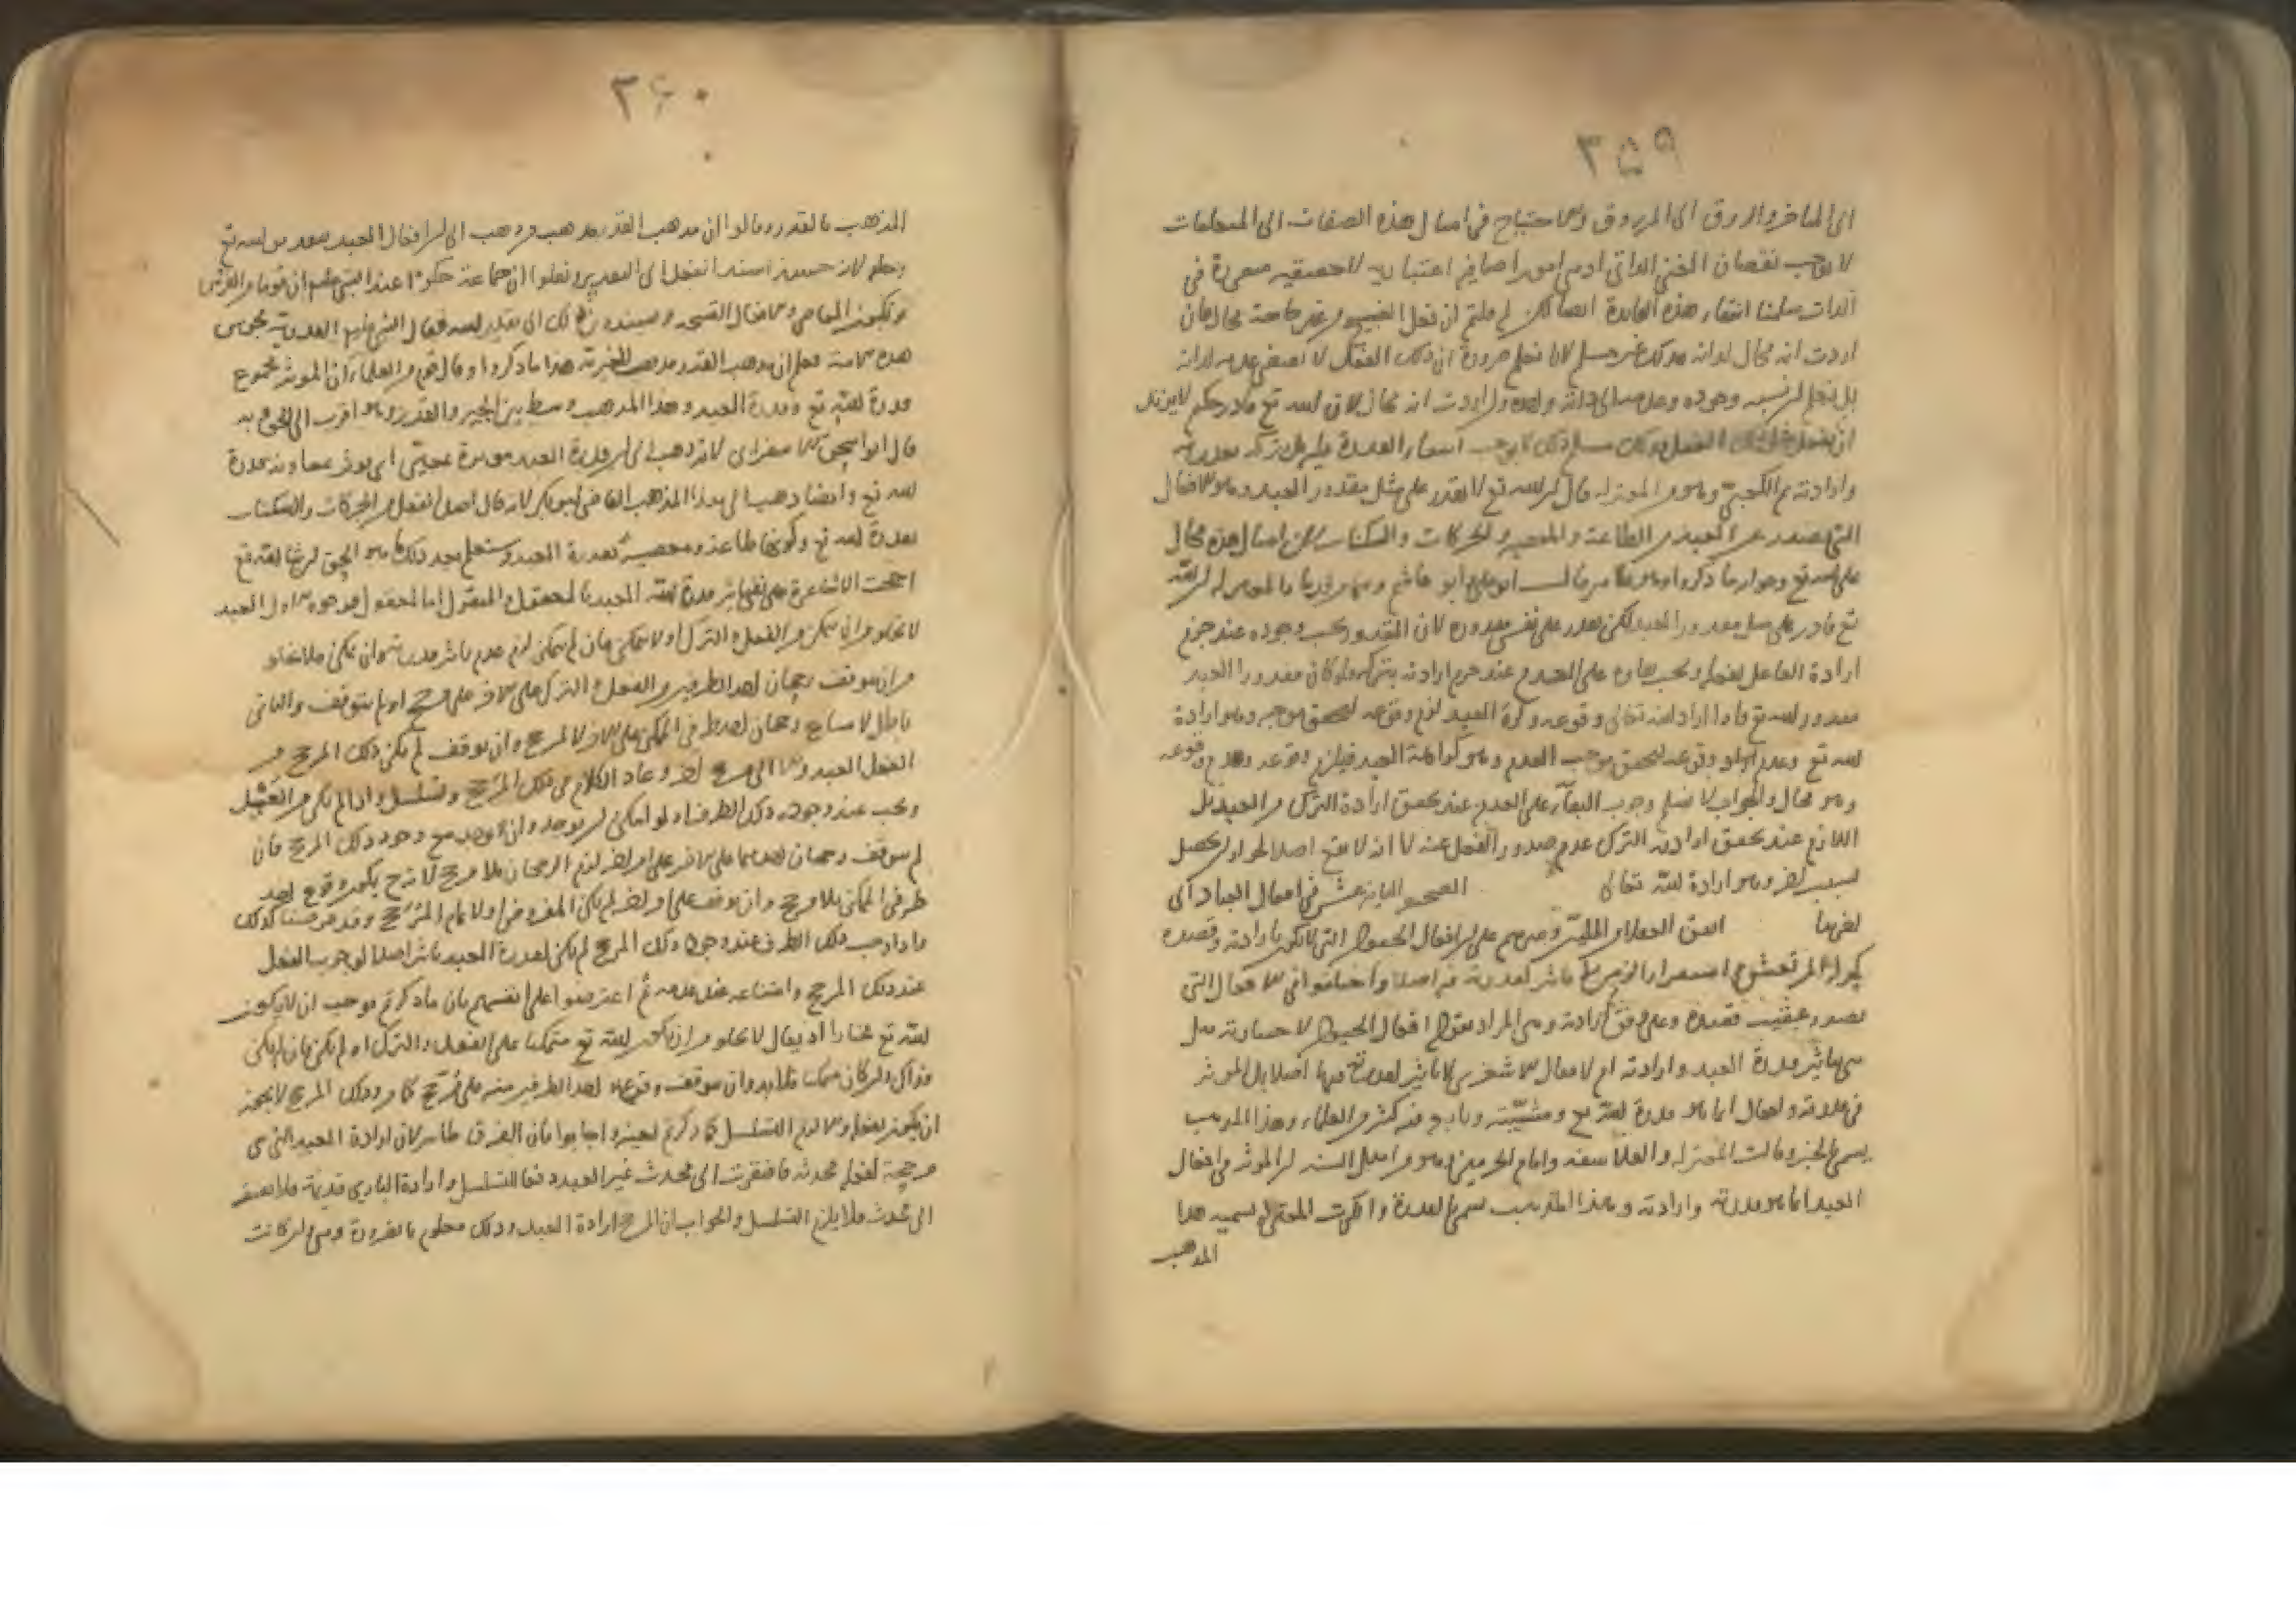 ٣٥٩
الى الماخر والاروق الى المرزوق والاحتياج في امثال هذه الصفات الى المتعلقات
لا يوجب نقصان الغني الذاتي اذ هي امور اضافية اعتبارية لا حقيقية في
الذات سلمنا انتفاء هذه القاعدة لكن لم قلتم ان فعل القبيح من غير حاجة محال فان
اردت انه محال لذاته فذلك غير مسلم لانا نعلم ضرورة ان ذلك الفعل لا لذاته
بل نعلم نسبة وجوده وعدمه الى ذاته وان اردت انه محال لان الله تع قادر حكيم لا يريد
ان يفعل ذلك الفعل مسلم ذلك لا يوجب القدرة
وارادته ثم الكعبي وهو من المعتزلة قال ان الله تع لا يقدر على مثل مقدور العبد وهو الافعال
التي تصدر عن العبد من الطاعة والمعصية والحركات والسكنات لان امثال هذه محال
على الله تع وجوابه ما ذكروا وقال ابو علي ابو هاشم والحق ان الله
تع قادر على مثل مقدور العبد لكن لا يقدر على نفس مقدوره لان المقدور يجب وجوده عند جزم
ارادة الفاعل لفعله ويجب بقاؤه على العدم عند جزم ارادته بتركه ولو كان مقدور العبد
مقدور الله تع فاذا اراد الله تعالى وقوعه وكره العبد لزم وقوعه لتحقق موجبه وهو ارادة
الله تع وعدم وقوعه لتحقق موجب العدم وهو كراهة العبد فيلزم وقوعه وعدم وقوعه
وهو محال والجواب لا نسلم وجوب البقاء على العدم عند تحقق ارادة الترك من العبد بل
اللازم عند تحقق ارادته الترك عدم صدور الفعل عنه لا انه لا يقع اصلا لجواز ان يحصل
لسبب اخر وهو ارادة الله تعالى الصحيفة الثانية عشر في افعال العباد اى
اتفق العقلاء المليين وغيرهم على ان افعال الحيوان التي لا تكون بارادته وقصده
لا تاثير لقدرته فيه اصلا واختلفوا في الافعال التي
تصدر عقيب قصده وعلى وفق ارادته وهي المراد بقولهم افعال الحيوان الاختيارية هل
هي بتاثير قدرة العبد وارادته ام لا فقال الاشعري لا تاثير لقدرته فيها اصلا بل المؤثر
في قدرته وافعاله انما هو قدرة الله تع ومشيته وتابعه فيه كثير من العلماء وهذا المذهب
يسمى الجبر وقالت المعتزلة والفلاسفة وامام الحرمين وهو من اهل السنة ان المؤثر في افعال
العبد انما هو قدرته وارادته وهذا المذهب يسمى القدر وانكرت المعتزلة تسمية هذا
المذهب
٣٦٠
المذهب بالقدر وقالوا ان مذهب القدر مذهب من ذهب الى ان افعال العبد بقدر من الله تع
اسند الفعل الى التقدير ونقلوا ان جماعة حكوا عند النبي عليه ان قوما من الفرس
يرتكبون المعاصي والافعال القبيحة ويسندون ذلك الى تقدير الله فقال النبي عليه القدرية مجوس
هذه الامة فعلم ان مذهب القدر مذهب المجبرة هذا ما ذكروا وقال قوم من العلماء ان المؤثر مجموع
قدرة الله تع وقدرة العبد وهذا المذهب وسط بين الجبر والقدر وهو اقرب الى الحق وبه
قال ابو اسحق الاسفرايني لانه ذهب الى ان قدرة العبد مؤثرة بمعين اى يؤثر بمعاونة قدرة
الله تع وايضا ذهب الى هذا المذهب القاضي ابو بكر لانه قال اصل الفعل من الحركات والسكنات
بقدرة الله تع وكونها طاعة ومعصية بقدرة العبد وستعلم بعد ذلك ما هو الحق ان شا الله تع
احتجت الاشاعرة على نفي تاثير قدرة العبد بالمعقول والمنقول اما المعقول فوجوه الاول العبد
لا يخلو من ان يتمكن من الفعل والترك او لا يتمكن فان لم يتمكن لزم عدم تاثير قدرته وان تمكن فلا يخلو
من ان يتوقف رجحان احد الطرفين من الفعل والترك على الاخر على مرجح او لم يتوقف والثاني
باطل لامتناع رجحان احد طرفي الممكن على الاخر لا لمرجح وان توقف لم يكن ذلك المرجح من
الفعل العبد والا الى مرجح اخر وعاد الكلام في ذلك المرجح وتسلسل واذا لم يكن من العبد
ويجب عند وجوده ذلك الطرف اذ لو امكن ان يوجد وان لا يوجد مع وجود ذلك المرجح فان
لم يتوقف رجحان احدهما على الاخر على امر اخر لزم الرجحان بلا مرجح لانه ح يكون وقوع احد
طرفي الممكن بلا مرجح وان توقف على امر اخر لم يكن المفروض اولا تمام المرجح وقد فرضنا كذلك
واذا وجب ذلك الطرف عند وجود ذلك المرجح لم يكن لقدرة العبد تاثير اصلا لوجوب الفعل
عند ذلك المرجح وامتناعه عند عدمه ثم اعترضوا على انفسهم بان ما ذكرتم يوجب ان لا يكون
الله تع مختارا اذ يقال لا يخلو من ان يكون الله تع متمكنا على الفعل والترك او لم يكن فان لم يكن
فذاك وان كان متمكنا فلا بد وان يتوقف وقوع احد الطرفين منه على مرجح كما مر وذلك المرجح لا يجوز
ان يكون بفعله والا لزم التسلسل كما ذكرتم بعينه واجابوا بان الفرق ظاهر لان ارادة العبد التي هي
مرجحة لفعله محدثة فافتقرت الى محدث غير العبد دفعا للتسلسل وارادة الباري قديمة فلا تفتقر
الى محدث فلا يلزم التسلسل والجواب ان المرجح ارادة العبد وذلك معلوم بالضرورة وهي وان كانت